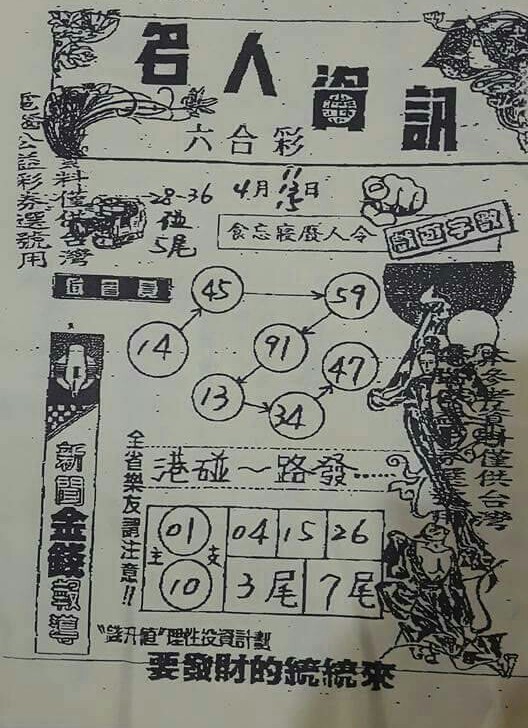 名人資訊
六合彩
資料僅供台灣
公益彩券選號用
28-36
碰
5尾
4月 11 13 15日
食忘寢廢人令
45
59
14
91
47
13
34
新聞金錢報導
全省樂友請注意!!
港碰~路發.....
主 01 10 支
04 15 26
3尾 7尾
本參考資料僅供台灣
"錢升值"理性投資計劃
要發財的統統來